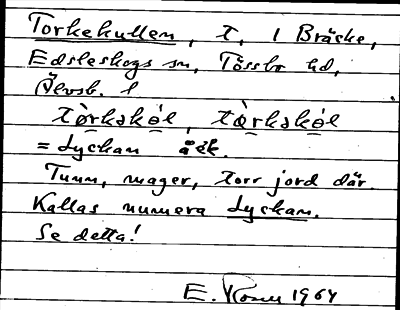 Torkekullen, t, i Bräcke,
Edsleskogs sn, Tössbo hd,
Älvsb. l
= Lyckan åék.
Tunn, mager, torr jord där.
Kallas numera Lyckan.
Se detta!
E. Rosen 1964